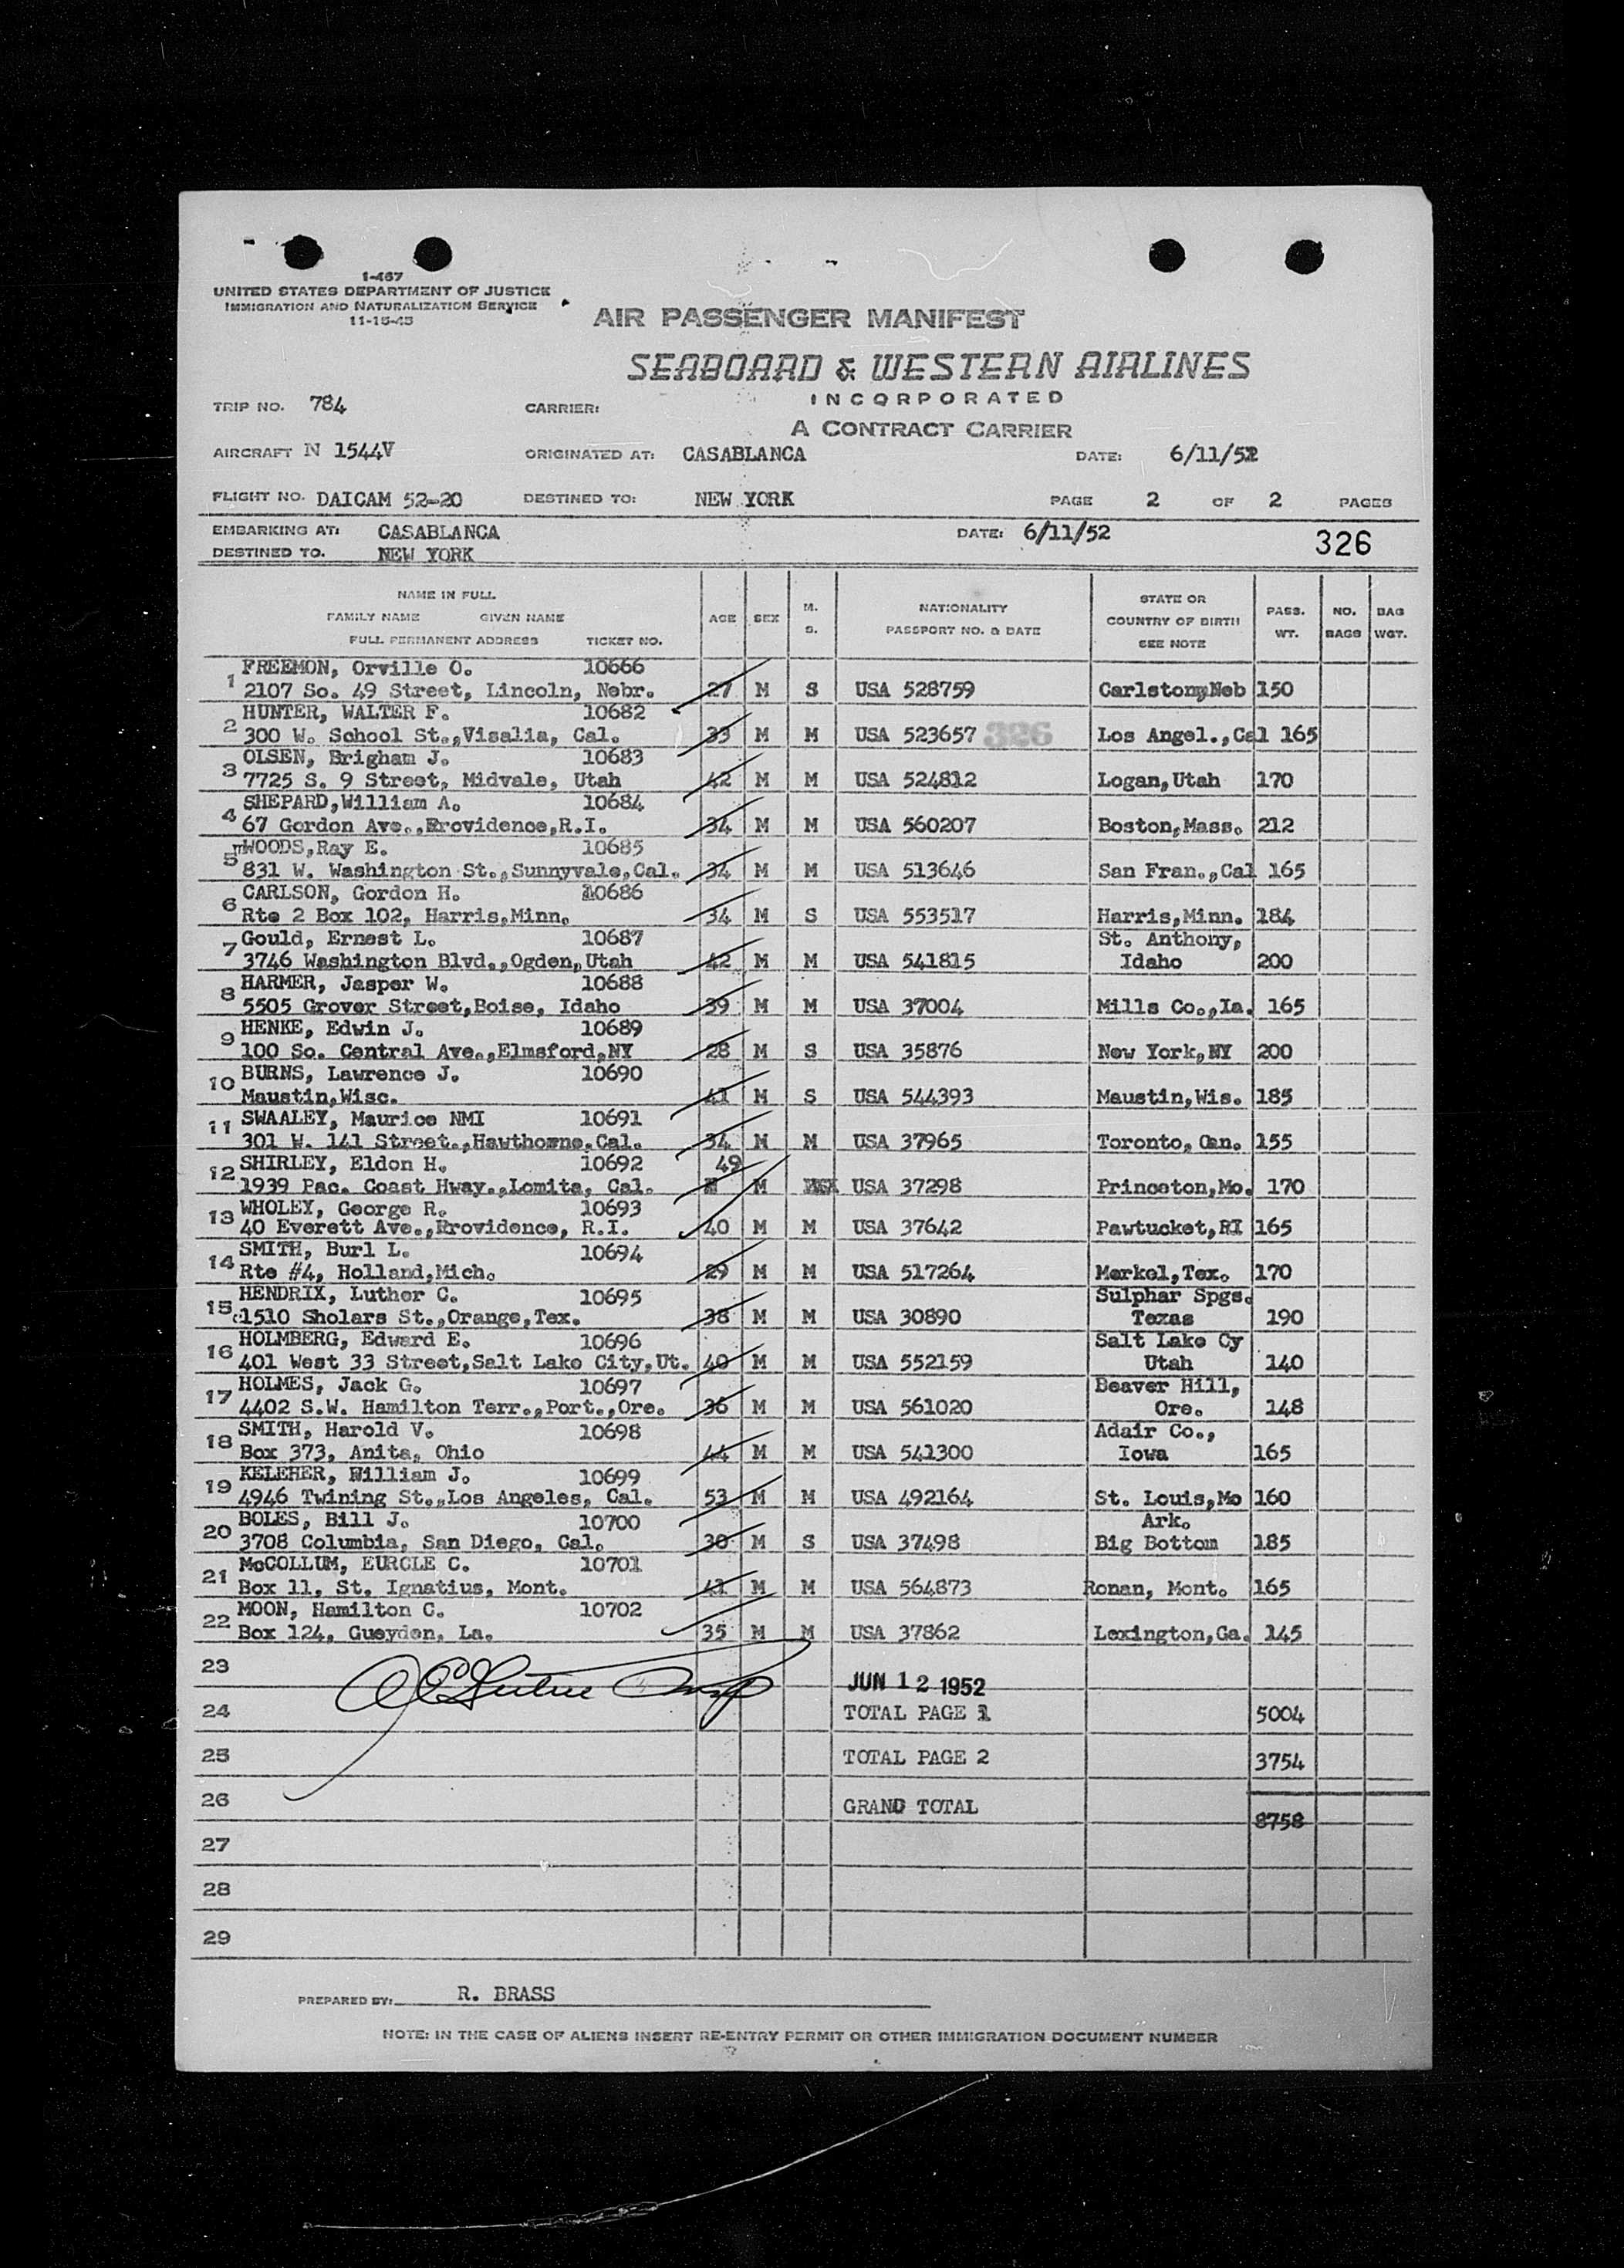 1-467
UNITED STATES DEPARTMENT OF JUSTICE
IMMIGRATION AND NATURALIZATION SERVICE
11-15-45
AIR PASSENGER MANIFEST
SEABOARD & WESTERN AIRLINES
INCORPORATED
A CONTRACT CARRIER
TRIP NO. 784 CARRIER:
AIRCRAFT N 1544V ORIGINATED AT: CASABLANCA DATE: 6/11/52
FLIGHT NO. DAICAM 52-20 DESTINED TO: NEW YORK PAGE 2 OF 2 PAGES
EMBARKING AT: CASABLANCA DATE: 6/11/52
DESTINED TO. NEW YORK
326
NAME IN FULL
FAMILY NAME GIVEN NAME
FULL PERMANENT ADDRESS TICKET NO.
AGE SEX M. S. NATIONALITY PASSPORT NO. & DATE STATE OR COUNTRY OF BIRTH SEE NOTE PASS. WT. NO. BAGS BAG WGT.
1 FREEMON, Orville O. 10666
2107 So. 49 Street, Lincoln, Nebr. 27 M S USA 528759 Carlston,Neb 150
2 HUNTER, WALTER F. 10682
300 W. School St.,Visalia, Cal. 33 M M USA 523657 326 Los Angel.,Cal 165
3 OLSEN, Brigham J. 10683
7725 S. 9 Street, Midvale, Utah 42 M M USA 524812 Logan,Utah 170
4 SHEPARD,William A. 10684
67 Gordon Ave.,Providence,R.I. 34 M M USA 560207 Boston,Mass. 212
5 WOODS,Ray E. 10685
831 W. Washington St.,Sunnyvale,Cal. 34 M M USA 513646 San Fran.,Cal 165
6 CARLSON, Gordon H. 10686
Rte 2 Box 102, Harris,Minn. 34 M S USA 553517 Harris,Minn. 184
7 Gould, Ernest L. 10687 St. Anthony,
3746 Washington Blvd.,Ogden,Utah 42 M M USA 541815 Idaho 200
8 HARMER, Jasper W. 10688
5505 Grover Street,Boise, Idaho 39 M M USA 37004 Mills Co.,Ia. 165
9 HENKE, Edwin J. 10689
100 So. Central Ave.,Elmsford,NY 28 M S USA 35876 New York,NY 200
10 BURNS, Lawrence J. 10690
Maustin,Wisc. 41 M S USA 544393 Maustin,Wis. 185
11 SWAALEY, Maurice NMI 10691
301 W. 141 Street.,Hawthorne,Cal. 34 M M USA 37965 Toronto, Can. 155
12 SHIRLEY, Eldon H. 10692 49
1939 Pac. Coast Hway.,Lomita, Cal. M USA 37298 Princeton,Mo. 170
13 WHOLEY, George R. 10693
40 Everett Ave.,Providence, R.I. 40 M M USA 37642 Pawtucket,RI 165
14 SMITH, Burl L. 10694
Rte #4, Holland,Mich. 29 M M USA 517264 Merkel,Tex. 170
15 HENDRIX, Luther C. 10695 Sulphar Spgs.
1510 Sholars St.,Orange,Tex. 38 M M USA 30890 Texas 190
16 HOLMBERG, Edward E. 10696 Salt Lake Cy
401 West 33 Street,Salt Lake City,Ut. 40 M M USA 552159 Utah 140
17 HOLMES, Jack G. 10697 Beaver Hill,
4402 S.W. Hamilton Terr.,Port.,Ore. 36 M M USA 561020 Ore. 148
18 SMITH, Harold V. 10698 Adair Co.,
Box 373, Anita, Ohio 44 M M USA 541300 Iowa 165
19 KELEHER, William J. 10699
4946 Twining St.,Los Angeles, Cal. 53 M M USA 492164 St. Louis,Mo 160
20 BOLES, Bill J. 10700 Ark.
3708 Columbia, San Diego, Cal. 30 M S USA 37498 Big Bottom 185
21 McCOLLUM, EURCLE C. 10701
Box 11, St. Ignatius, Mont. 41 M M USA 564873 Ronan, Mont. 165
22 MOON, Hamilton C. 10702
Box 124, Gueydon, La. 35 M M USA 37862 Lexington,Ga. 145
23 JUN 12 1952
24 TOTAL PAGE 1 5004
25 TOTAL PAGE 2 3754
26 GRAND TOTAL 8758
27
28
29
PREPARED BY: R. BRASS
NOTE: IN THE CASE OF ALIENS INSERT RE-ENTRY PERMIT OR OTHER IMMIGRATION DOCUMENT NUMBER